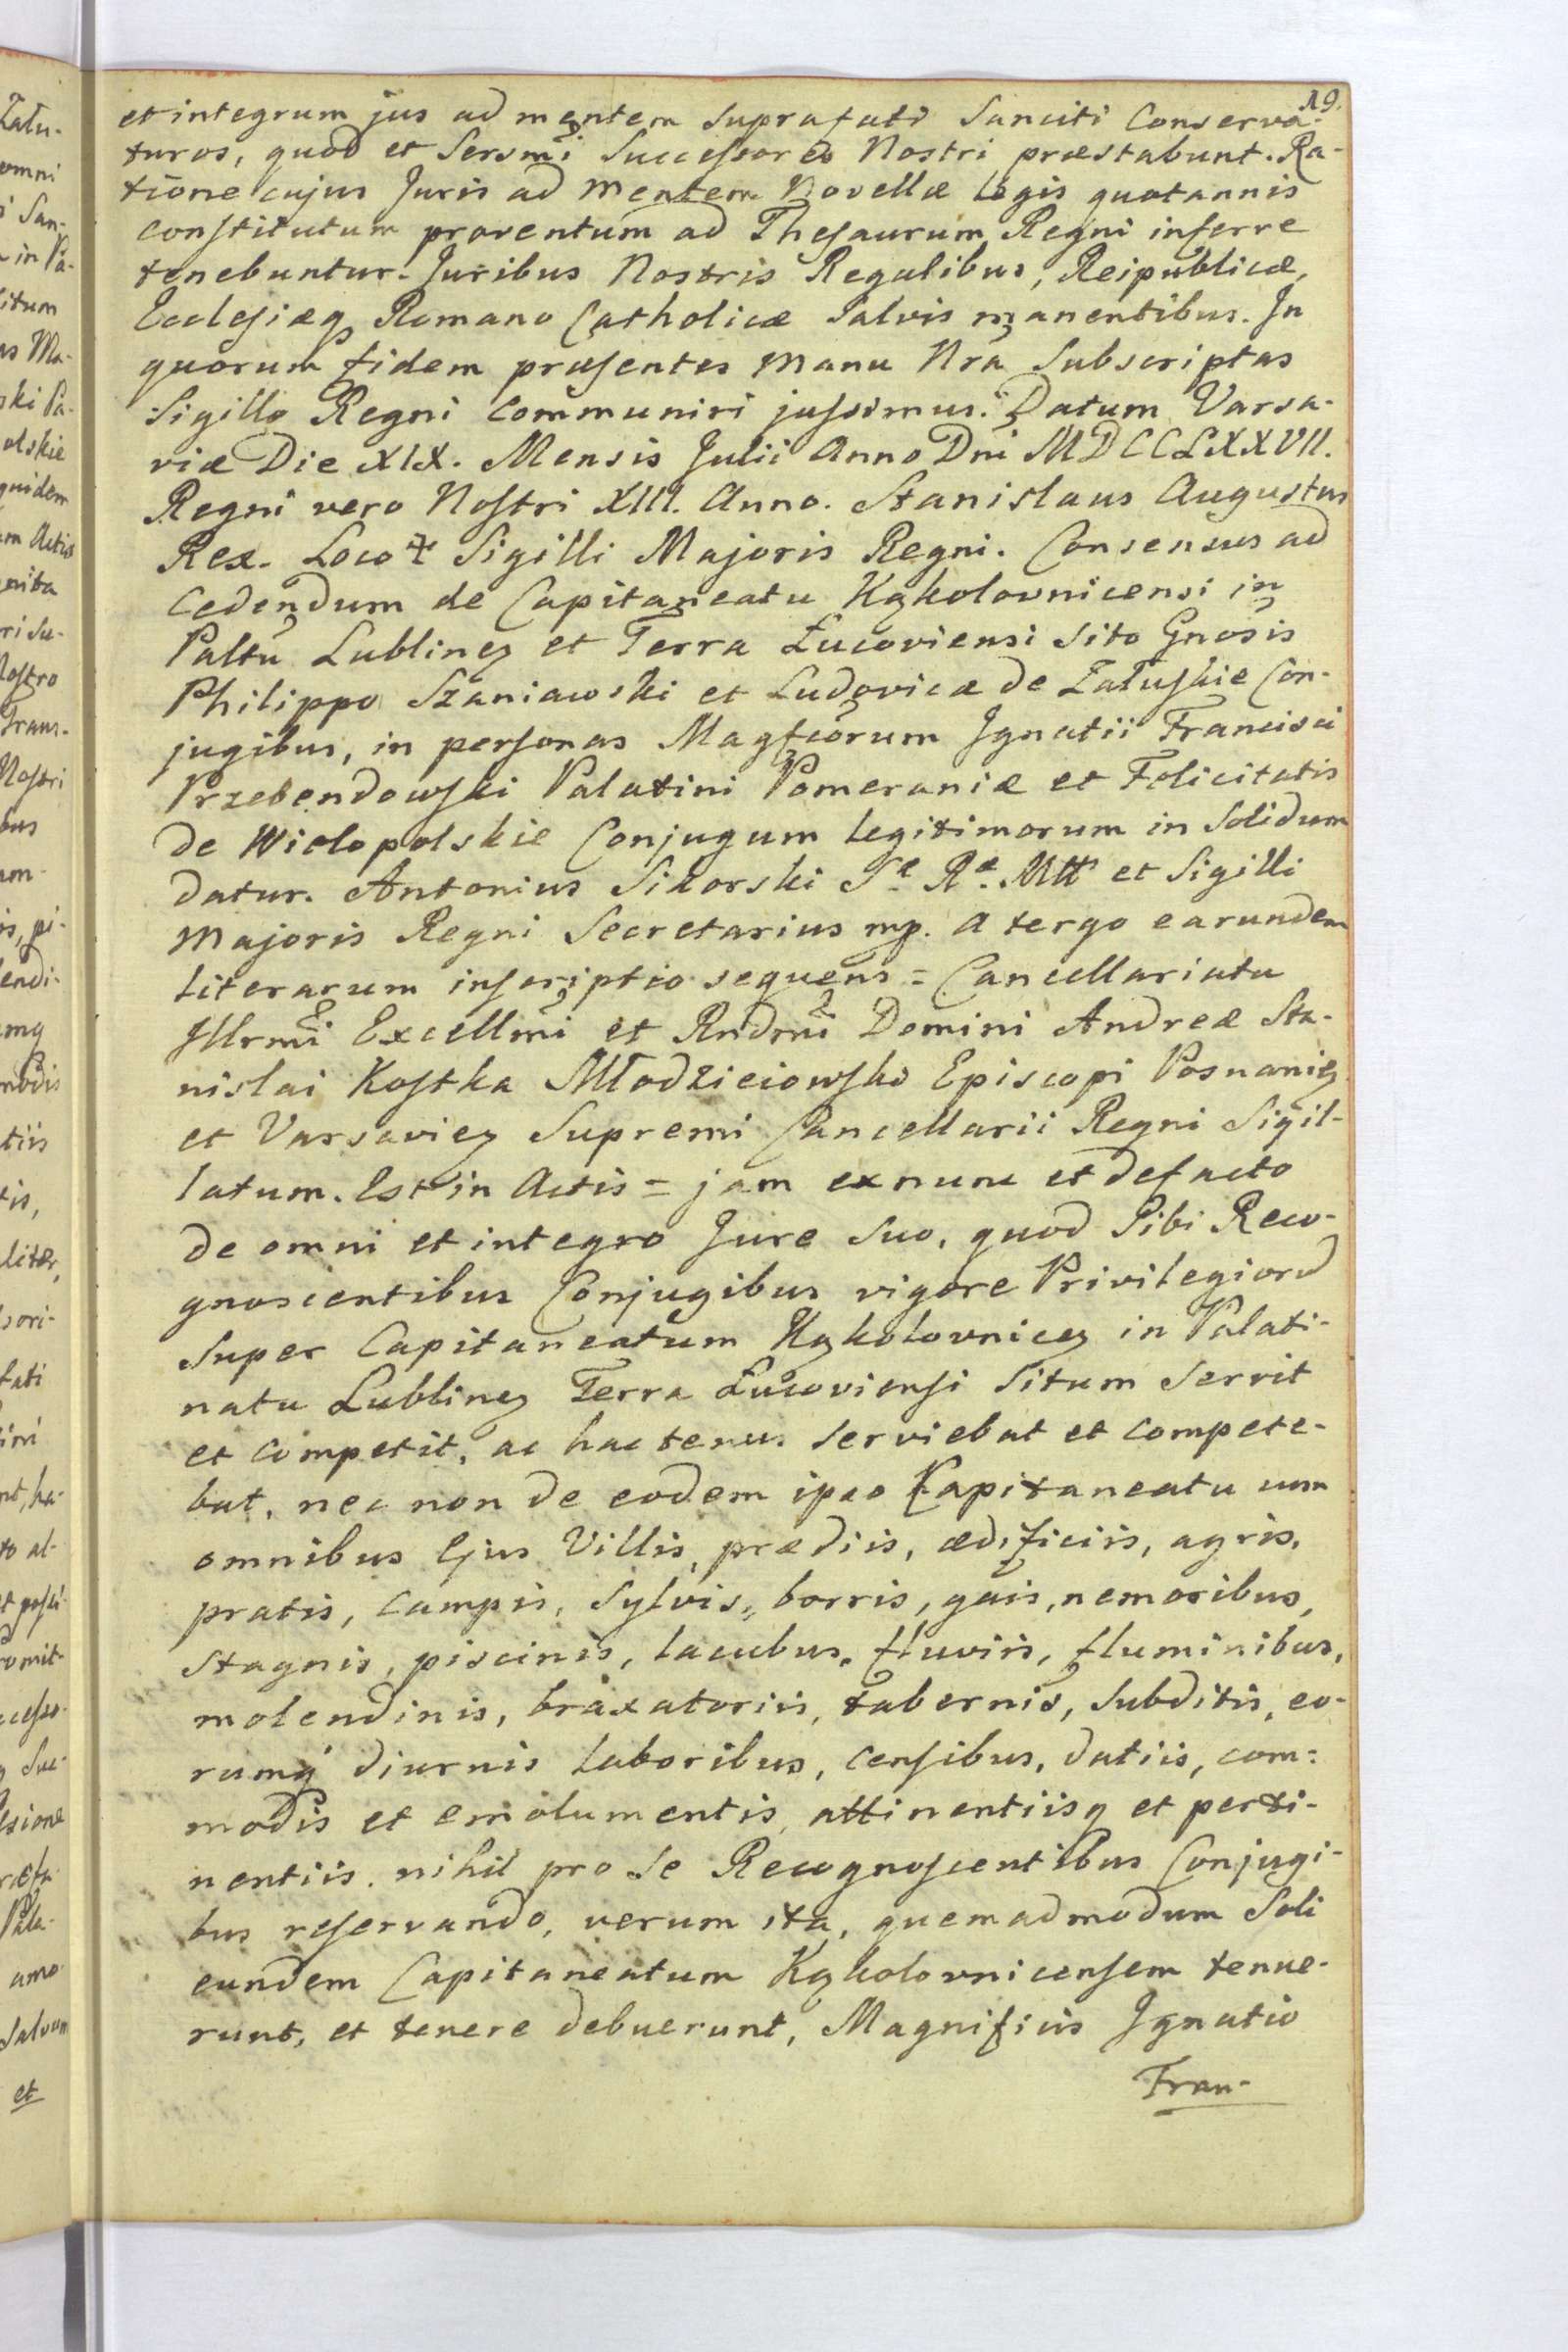 19.
et integrum jus ad mentem suprafati Sanciti Conserva-
turos, quod et Sersmi Successores Nostri præstabunt. Ra-
tione cujus Juris ad mentem Novellæ Legis quotannis
constitutum proventum ad Thesaurum Regni inferre
tenebuntur. Juribus Nostris Regalibus, Reipublicæ,
Ecclesiæq Romano Catholicæ salvis manentibus. In
quorum fidem præsentes manu Nra Subscriptas
Sigillo Regni communiri jussimus. Datum Varsa-
viæ Die XIX. Mensis Julii Anno Dni MDCCLXXVII.
Regni vero Nostri XIII. Anno. Stanislaus Augustus
Rex. Loco ✝ Sigilli Majoris Regni. Consensus ad
Cedendum de Capitaneatu Kąkolovnicensi in
Palttu Lublinen et Terra Łucoviensi sito Gnosis
Philippo Szaniawski et Ludovicæ de Załuskie Con-
jugibus, in personas Magfcorum Ignatii Francisci
Przebendowski Palatini Pomeraniæ et Felicitatis
de Wielopolskie Conjugum legitimorum in Solidum
datur. Antonius Sikorski Sæ Ræ Mtt et Sigilli
Majoris Regni Secretarius mp. A tergo earundem
Literarum inscriptio sequens = Cancellariatu
Illrmi Excellmi et Rndmi Domini Andreæ Sta-
nislai Kostka Młodzieiowski Episcopi Posnanien
et Varsavien Supremi Cancellarii Regni Sigil-
latum. Est in Actis = jam exnunc et defacto
de omni et integro Jure suo, quod Sibi Reco-
gnoscentibus Conjugibus vigore Privilegiord
super Capitaneatum Kąkolovnicen in Palati-
natu Lublinen Terra Łucoviensi situm servit
et competit, ac hactenus serviebat et compete-
bat, nec non de eodem ipso Capitaneatu cum
omnibus Ejus Villis, prædiis, ædificiis, agris,
pratis, campis, sylvis, borris, gais, nemoribus,
stagnis, piscinis, lacubus, fluviis, fluminibus,
molendinis, braxatoriis, tabernis, subditis, eo-
rumq diurnis laboribus, censibus, datiis, com-
modis et emolumentis, attinentiisq et perti-
nentiis. nihil pro se Recognoscentibus Conjugi-
bus reservando, verum ita, quemadmodum Soli
eundem Capitaneatum Kąkolovnicensem tenue-
runt, et tenere debuerunt, Magnificis Ignatio
Fran-